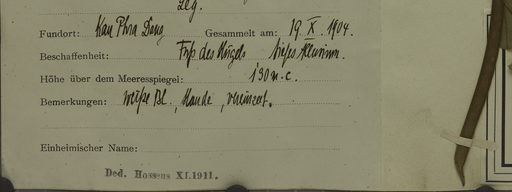 Leg.
Fundort: Kau Phra Dang Gesammelt am: 19. X. 1904.
Beschaffenheit: Fuß des Hügels tiefes Alluvium.
Höhe über dem Meeresspiegel: 130 m.c.
Bemerkungen: weiße Bl., Staude, vereinzelt.
Einheimischer Name:
Ded. Hosseus XI.1911.